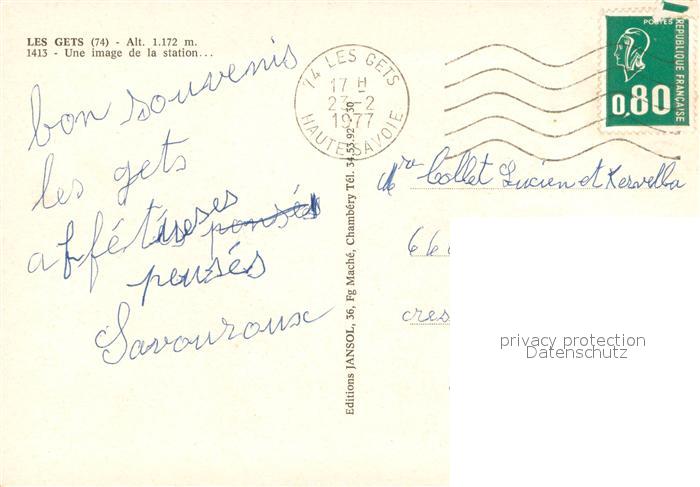 LES GETS (74) - Alt. 1.172 m.
1413 - Une image de la station...
bon souvenis
les gets
afféteuses pensés
pensés
Savouroux
74 LES GETS
17 H
23-2
1977
HAUTE-SAVOIE
Editions JANSOL, 36, Fg Maché, Chambéry Tél. 34.53.92 - 30
POSTES
RÉPUBLIQUE FRANÇAISE
0,80
Collet Lucien et
66
cres
privacy protection
Datenschutz